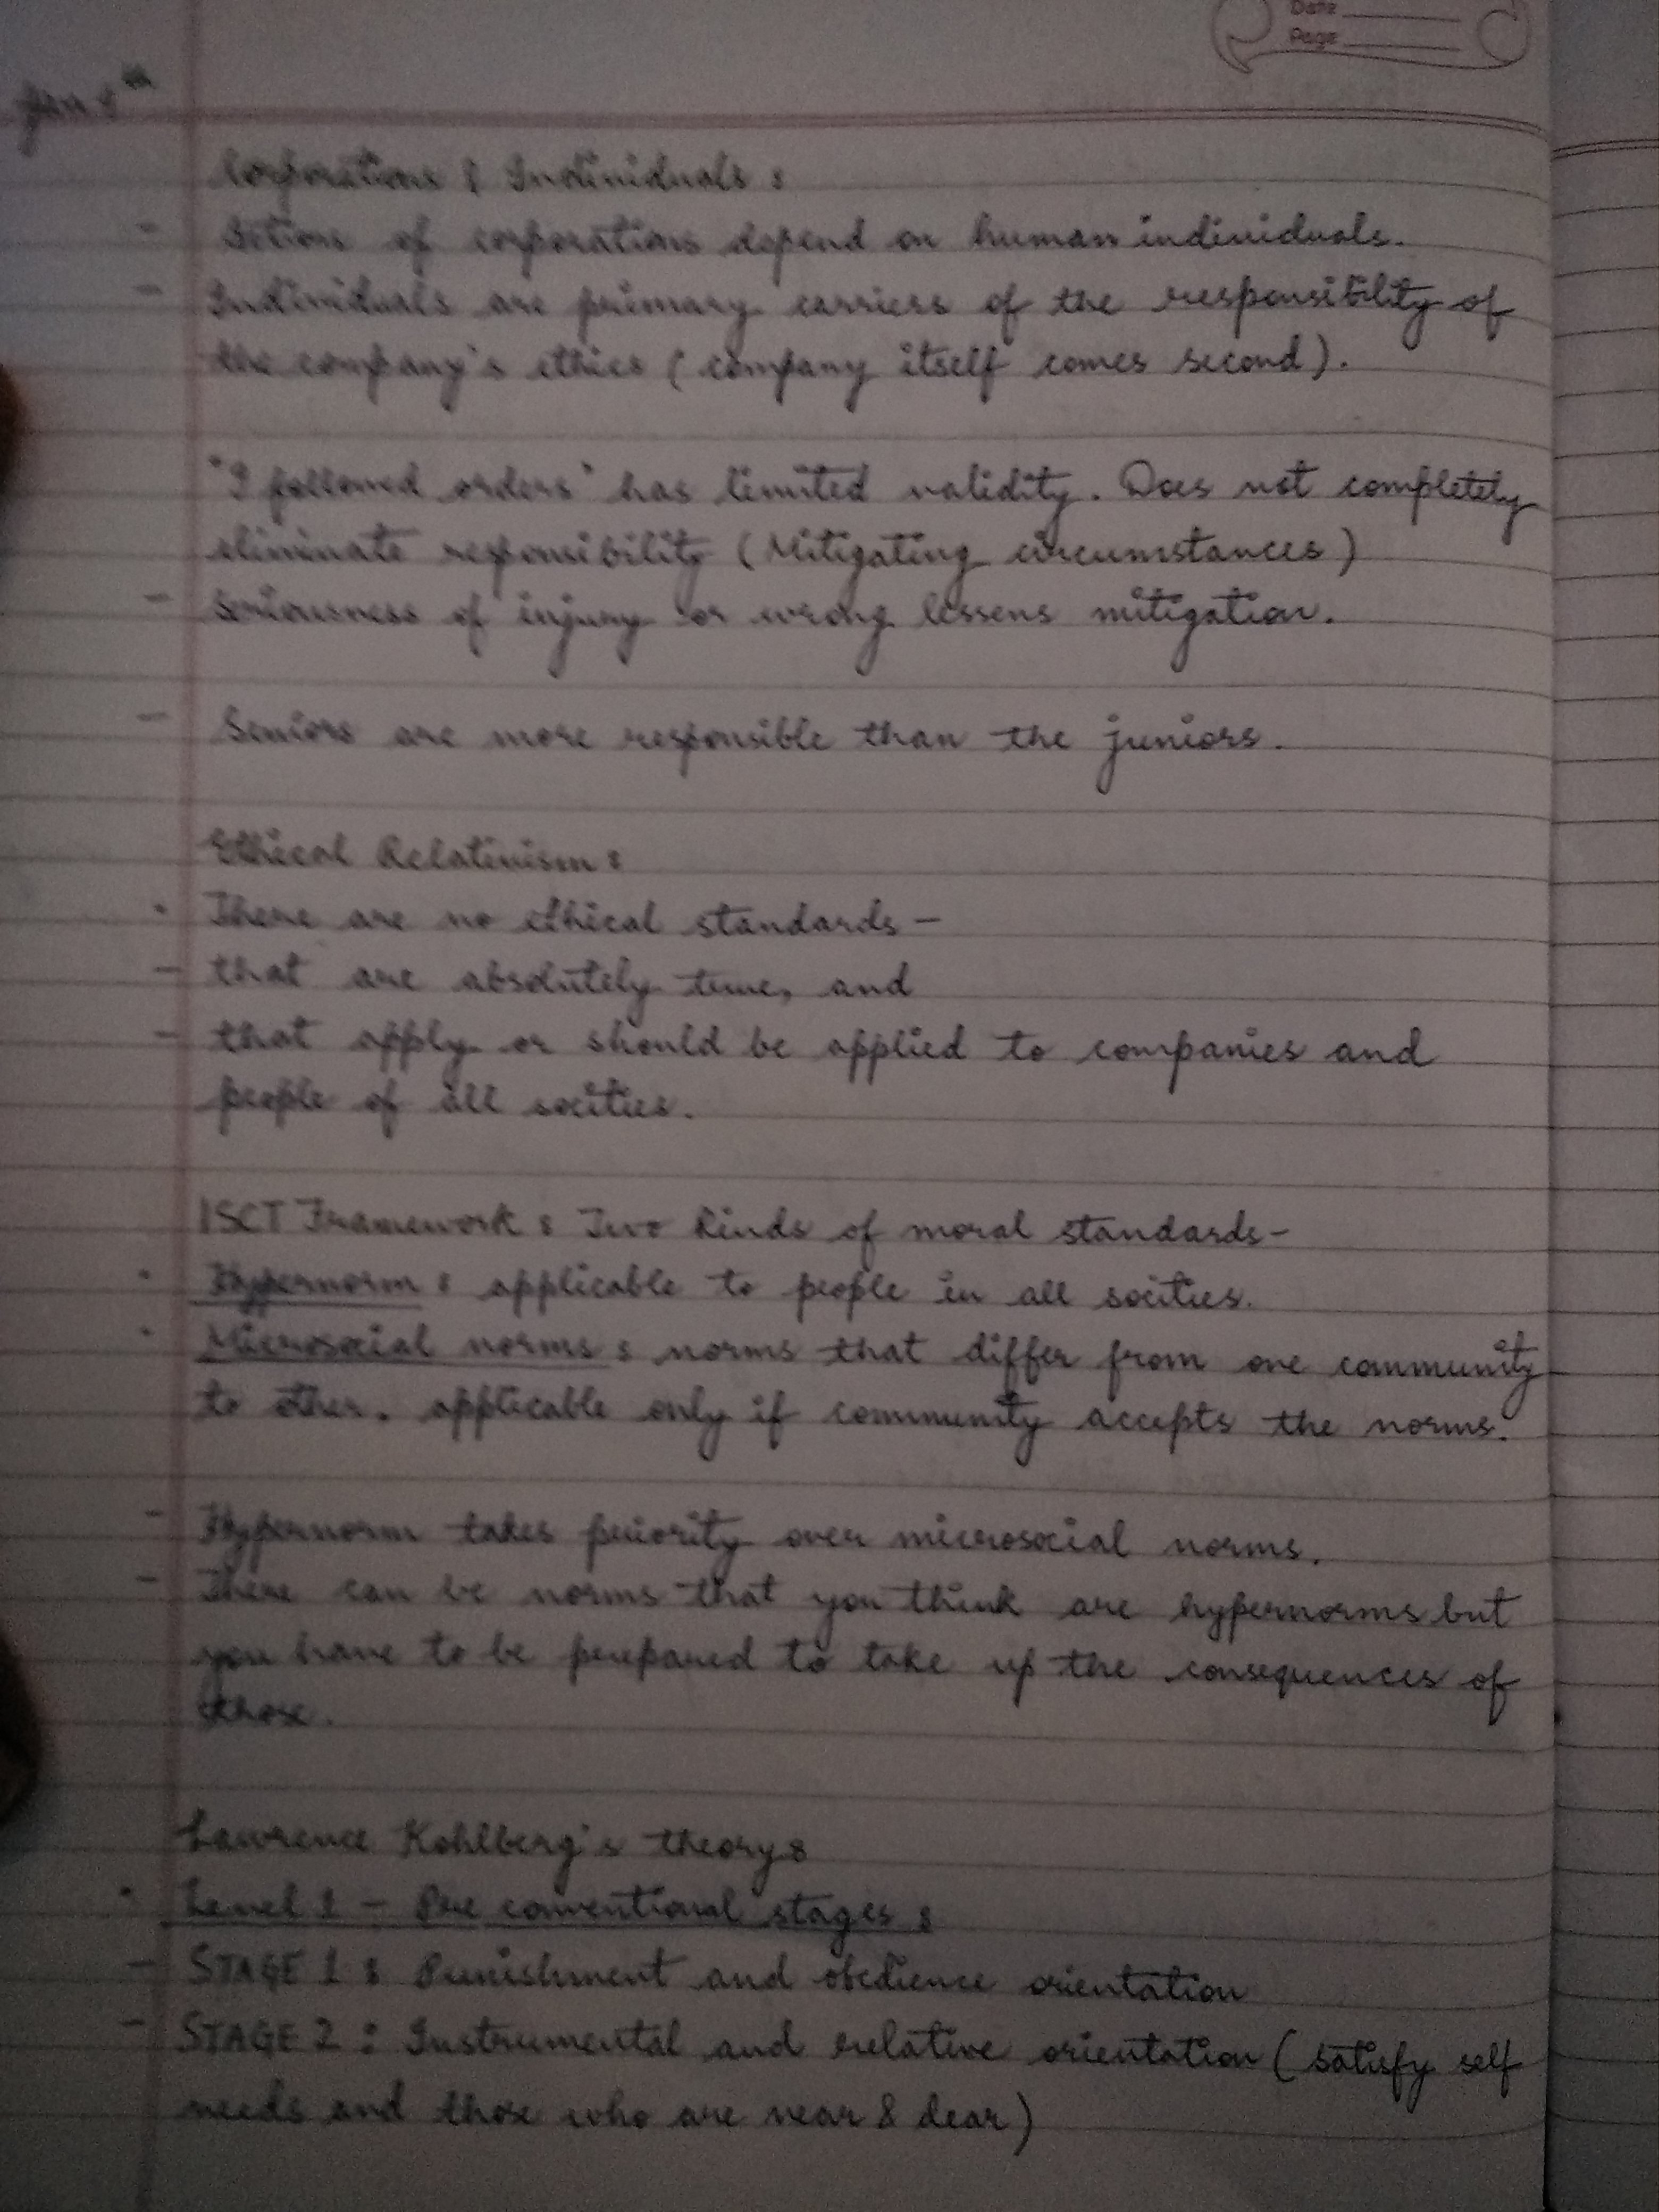 Date
Page
Corporations & Individuals :
- Actions of corporations depend on human individuals.
- Individuals are primary carriers of the responsibility of
the company's ethics (company itself comes second).
"I followed orders" has limited validity. Does not completely
eliminate responsibility (Mitigating circumstances)
- Seriousness of injury or wrong lessens mitigation.
- Seniors are more responsible than the juniors.
Ethical Relativism :
• There are no ethical standards -
- that are absolutely true, and
- that apply or should be applied to companies and
people of all socities.
ISCT Framework : Two kinds of moral standards -
• Hypernorm : applicable to people in all socities.
• Microsocial norms : norms that differ from one community
to other. applicable only if community accepts the norms.
- Hypernorm takes priority over microsocial norms.
- There can be norms that you think are hypernorms but
you have to be prepared to take up the consequences of
those.
Lawrence Kohlberg's theory :
• Level 1 - Pre conventional stages :
- STAGE 1 : Punishment and obedience orientation
- STAGE 2 : Instrumental and relative orientation (satisfy self
needs and those who are near & dear)